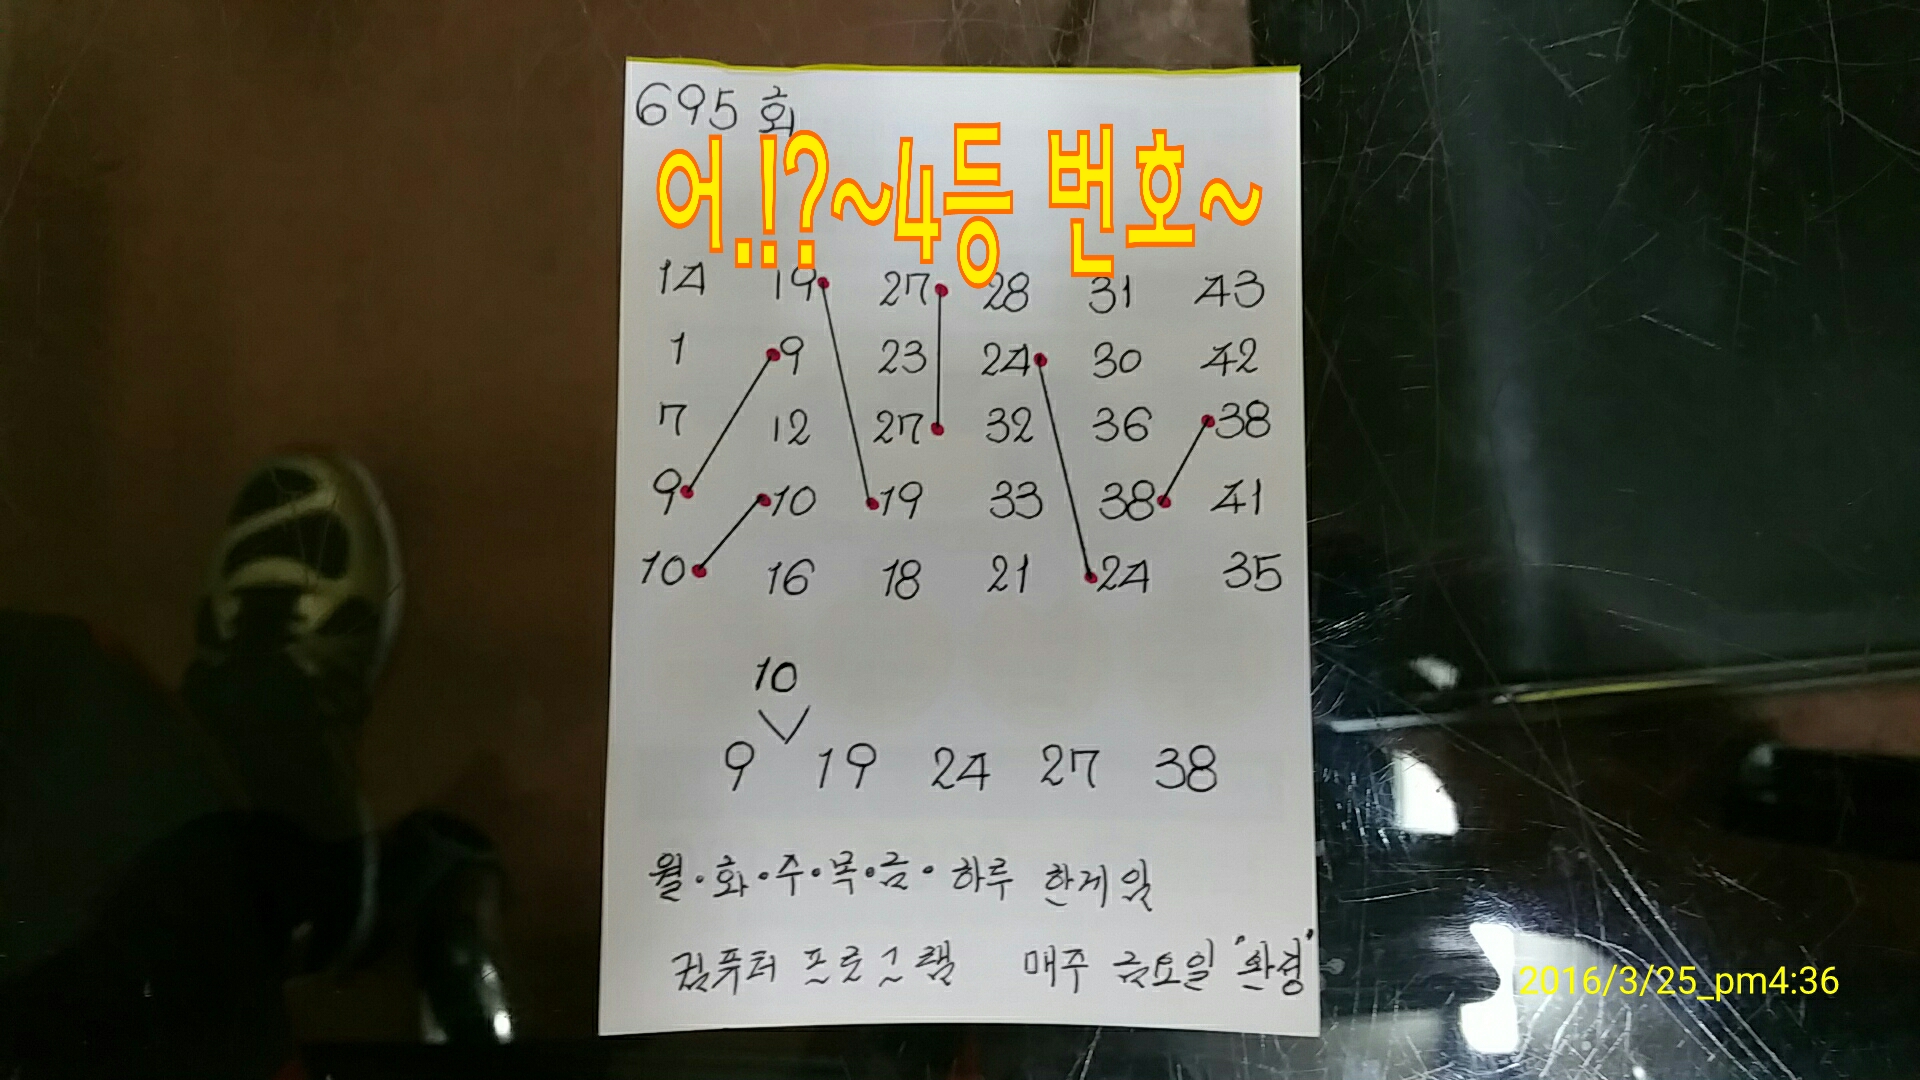 695회
어.!?~4등 번호~
14 19 27 28 31 43
1 9 23 24 30 42
7 12 27 32 36 38
9 10 19 33 38 41
10 16 18 21 24 35
10
9 19 24 27 38
월·화·수·목·금· 하루 한게임
컴퓨터 프로그램 매주 금요일 "완성"
2016/3/25_pm4:36